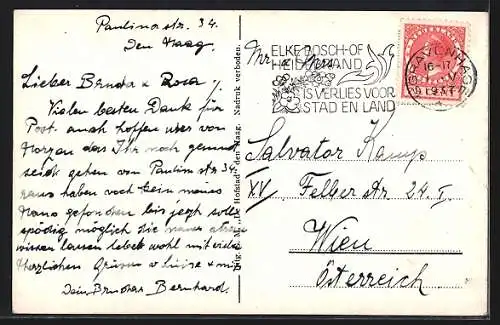 Paulina str. 34.
Den Haag.
Lieber Bruder & Rosa
Vielen besten Dank für
Post. auch hoffen aber von
Morgen das Ihr noch gesund
seid gehen von Paulina str 34
raus haben noch kein neues
Haus gefunden bis jetzt
möglich die neue
wissen lassen lebet wohl mit viele
Herzlichen Grüssen
Dein Bruder Bernhard.
Uitg. „De Hofstad“, den Haag. Nadruk verboden.
ELKE BOSCH- OF
HEIDEBRAND
IS VERLIES VOOR
STAD EN LAND
'S GRAVENHAGE
16-17
NEDERLAND
Salvator Kamp
XV Felberstr. 24. I.
Wien
Österreich